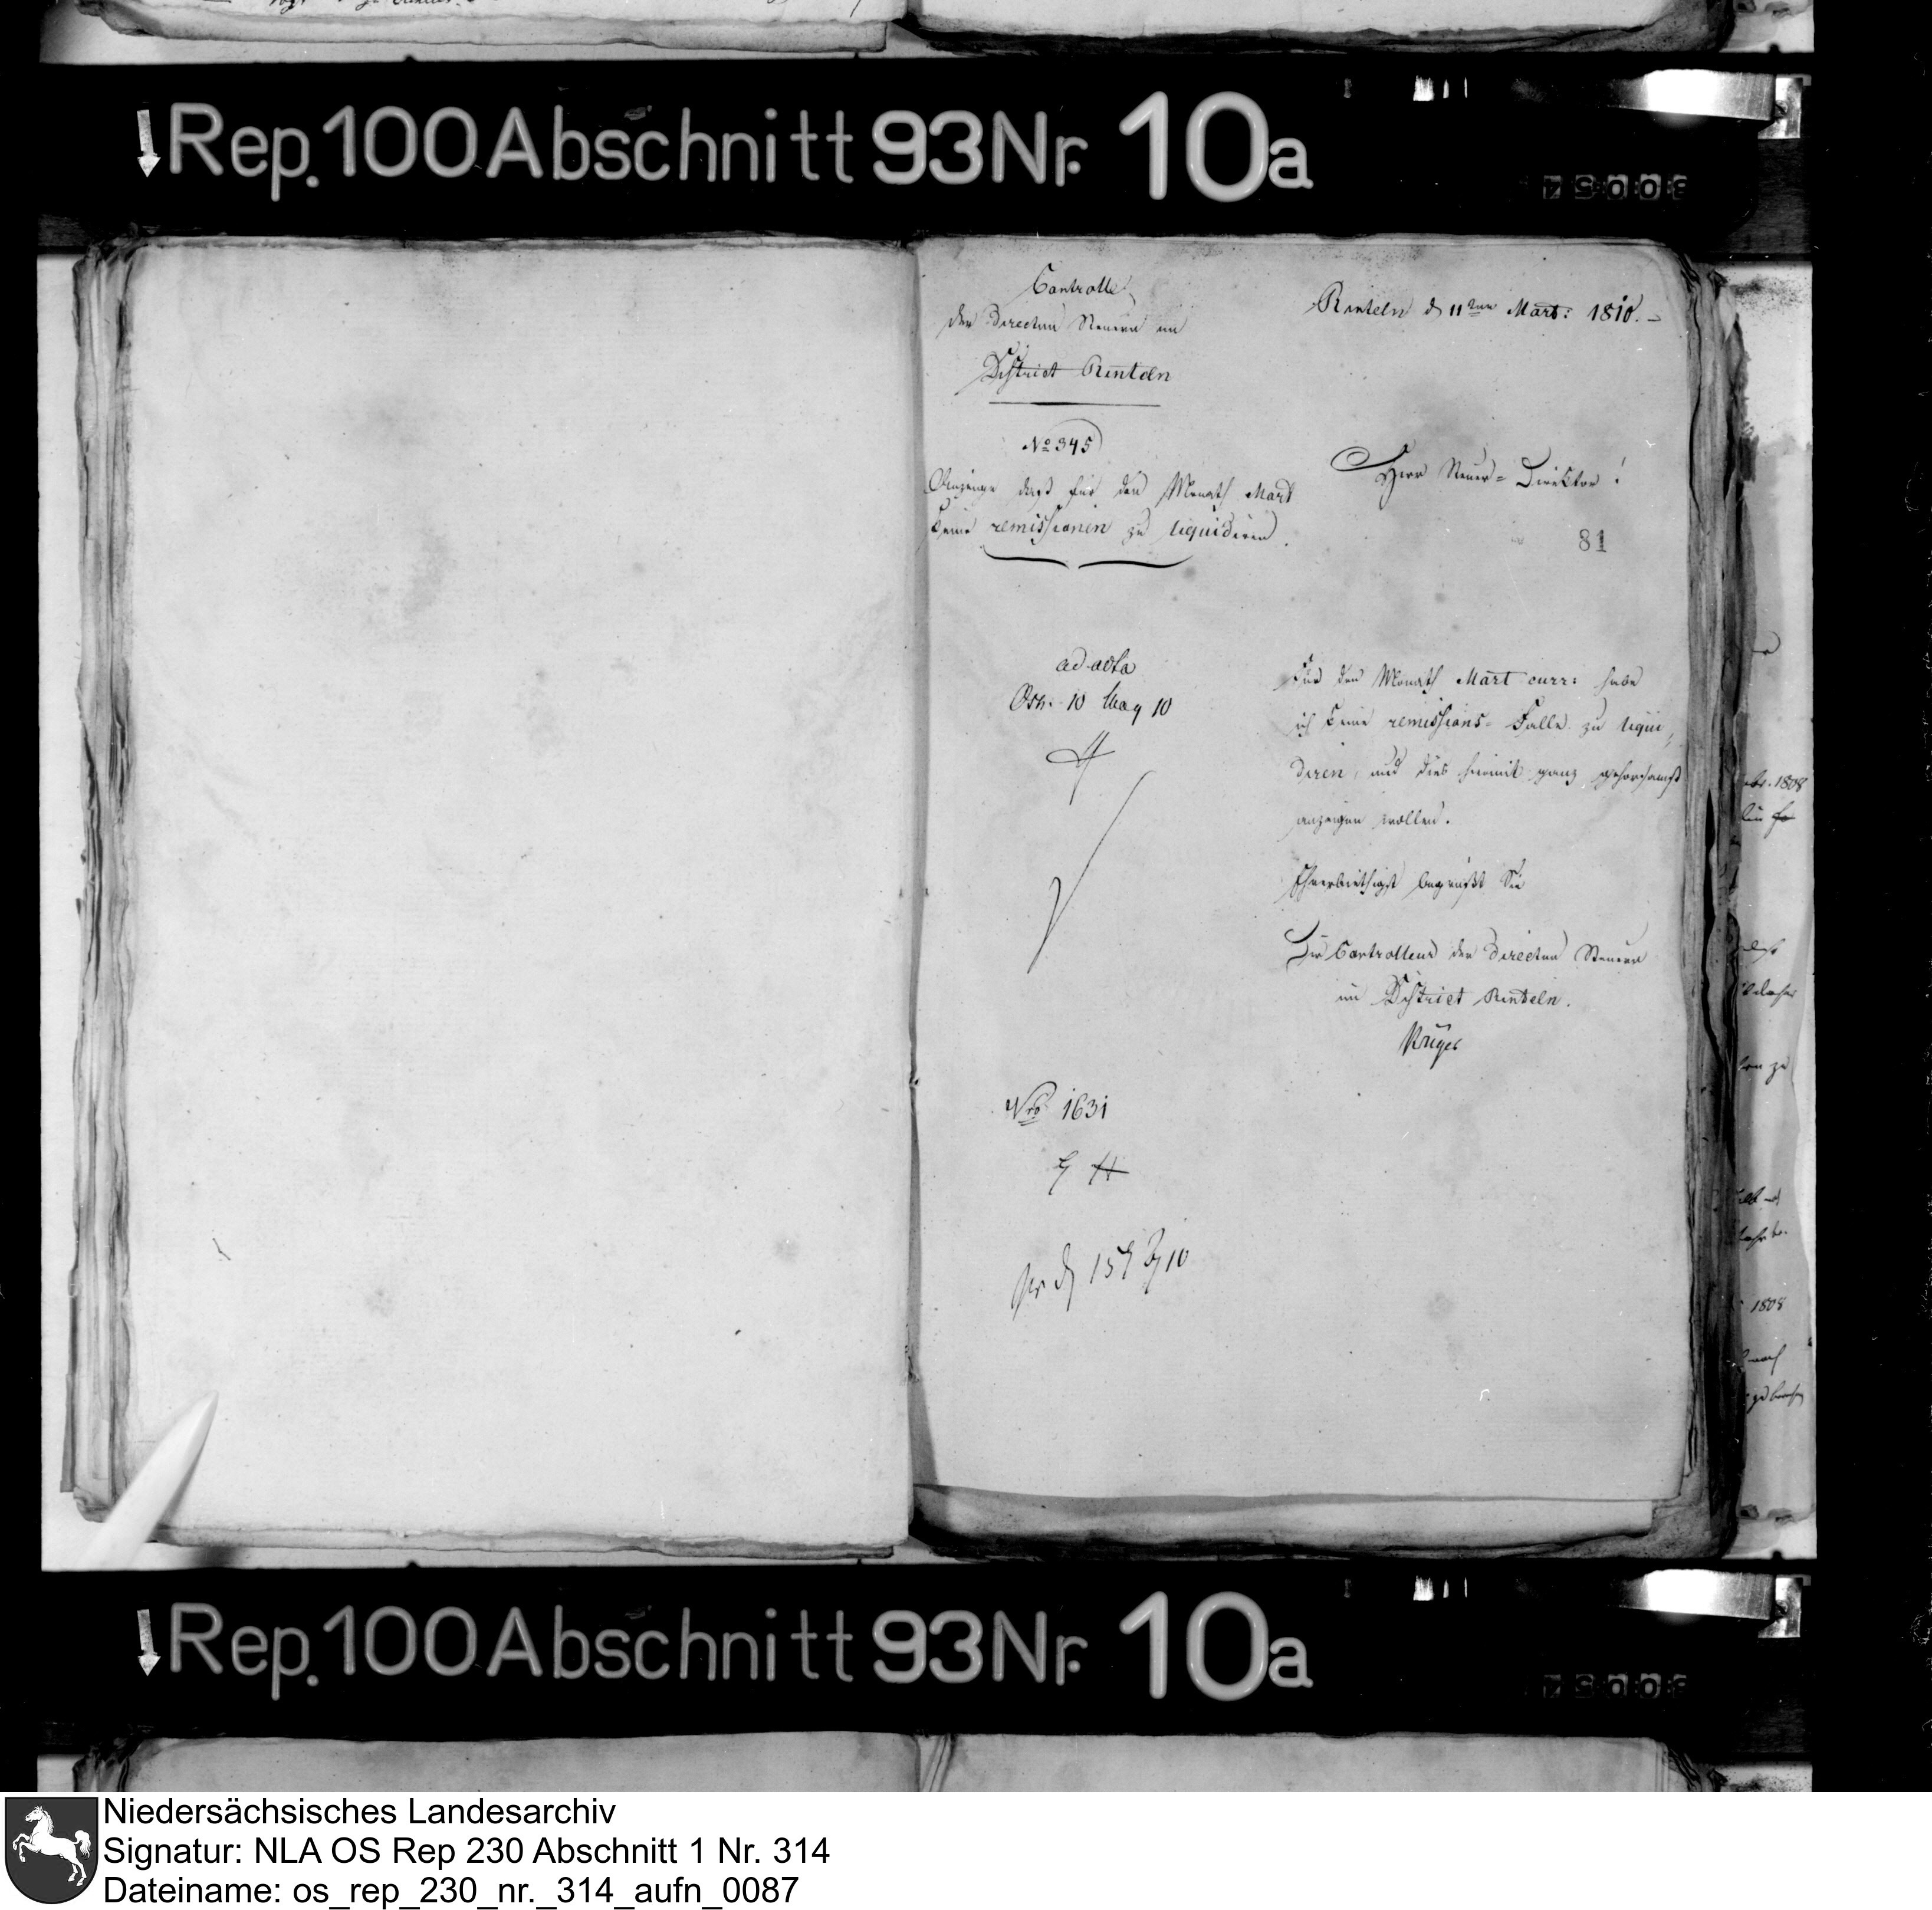 ↓Rep.100 Abschnitt 93 Nr. 10a
Controlle
der Directen Steuern im
District Rinteln
No 345
Anzeige daß für den Monath Mart
keine remissionen zu liquidiren.
ad acta
Osn. 10 May 10
Nro 1631
Rinteln d 11ten Mart: 1810.
Herr Steuer-Direktor!
81
Für den Monath Mart curr: habe
ich keine remissions-Falle zu liqui
diren, und dies hiemit ganz gehorsamst
anzeigen wollen.
Ehrerbiethigst begrüßt Sie
Der Controlleur der Directen Steuern
im District Rinteln.
Krüger
1808
1808
↓Rep.100 Abschnitt 93 Nr. 10a
Niedersächsisches Landesarchiv
Signatur: NLA OS Rep 230 Abschnitt 1 Nr. 314
Dateiname: os_rep_230_nr._314_aufn_0087